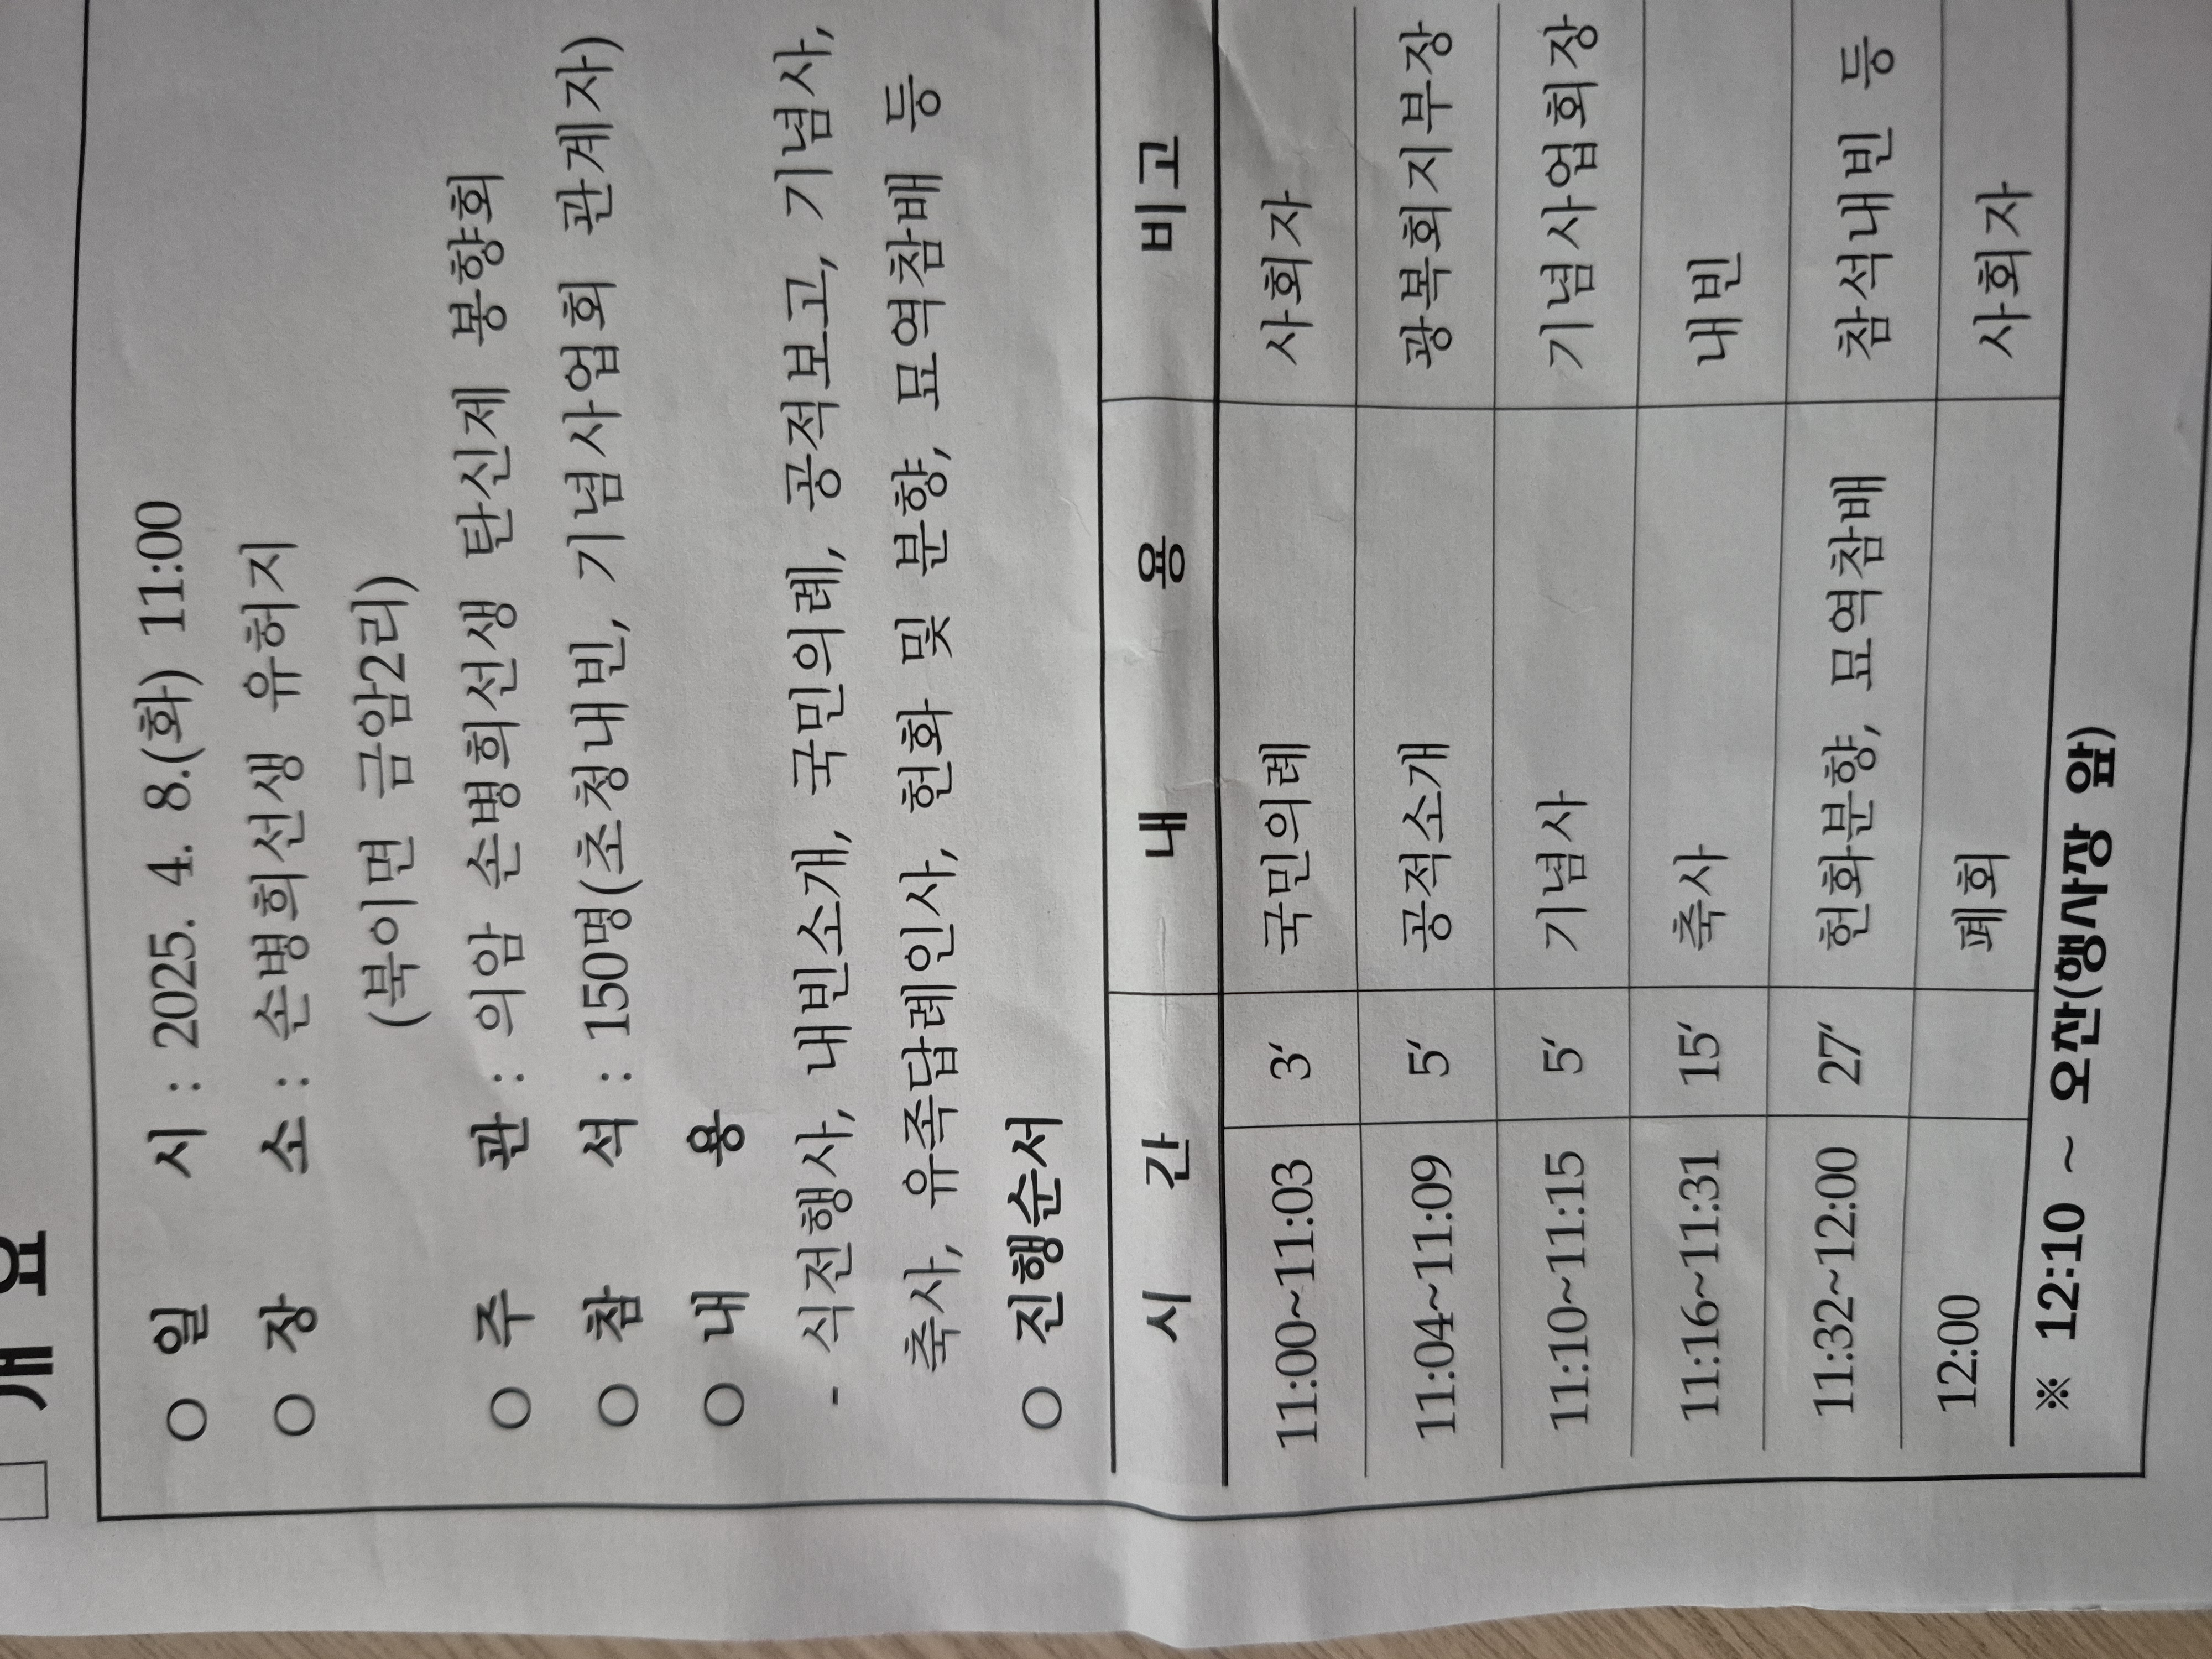 □ 개 요
○ 일 시 : 2025. 4. 8.(화) 11:00
○ 장 소 : 손병희선생 유허지
(북이면 금암2리)
○ 주 관 : 의암 손병희선생 탄신제 봉향회
○ 참 석 : 150명(초청내빈, 기념사업회 관계자)
○ 내 용
- 식전행사, 내빈소개, 국민의례, 공적보고, 기념사,
축사, 유족답례인사, 헌화 및 분향, 묘역참배 등
○ 진행순서
시 간 내 용 비 고
11:00~11:03 3′ 국민의례 사회자
11:04~11:09 5′ 공적소개 광복회지부장
11:10~11:15 5′ 기념사 기념사업회장
11:16~11:31 15′ 축사 내빈
11:32~12:00 27′ 헌화분향, 묘역참배 참석내빈 등
12:00 폐회 사회자
※ 12:10 ~ 오찬(행사장 앞)